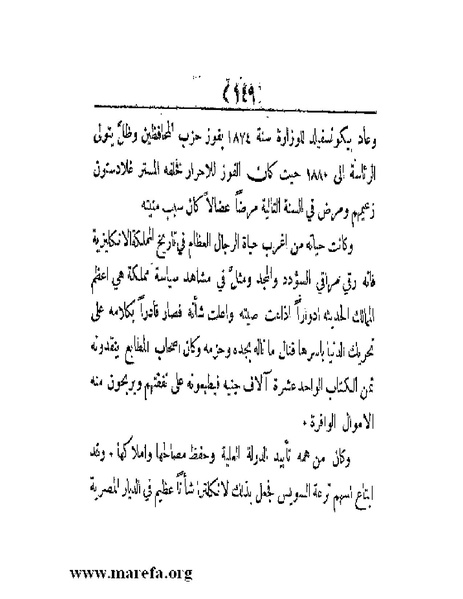 (١٤٩)
وعاد بيكونسفيلد للوزارة سنة ١٨٧٤ بفوز حزب المحافظين وظلَّ يتولى
الرئاسة الى ١٨٨٠ حيث كان الفوز للاحرار فخلفه المستر غلادستون
زعيمهم ومرض في السنة التالية مرضاً عضالاً كان سبب منيته
وكانت حياته من اغرب حياة الرجال العظام في تاريخ المملكة الانكليزية
فانه رقي مراقي السؤدد والمجد ومثلَّ في مشاهد سياسة مملكة هي اعظم
الممالك الحديثه ادواراً اذاعت صيته واعلت شأنه فصار قادراً بكلامه على
تحريك الدنيا باسرها فنال ما ناله بجده وحزمه وكان اصحاب المطابع ينقدونه
ثمن الكتاب الواحد عشرة آلاف جنيه فيطبعونه على نفقتهم ويربحون منه
الاموال الوافرة ٠
وكان من همه تأييد الدولة العلية وحفظ مصالحها واملاكها ٠ وقد
ابتاع اسهم ترعة السويس فجعل بذلك لانكلترا شأناً عظيم في الديار المصرية
www.marefa.org